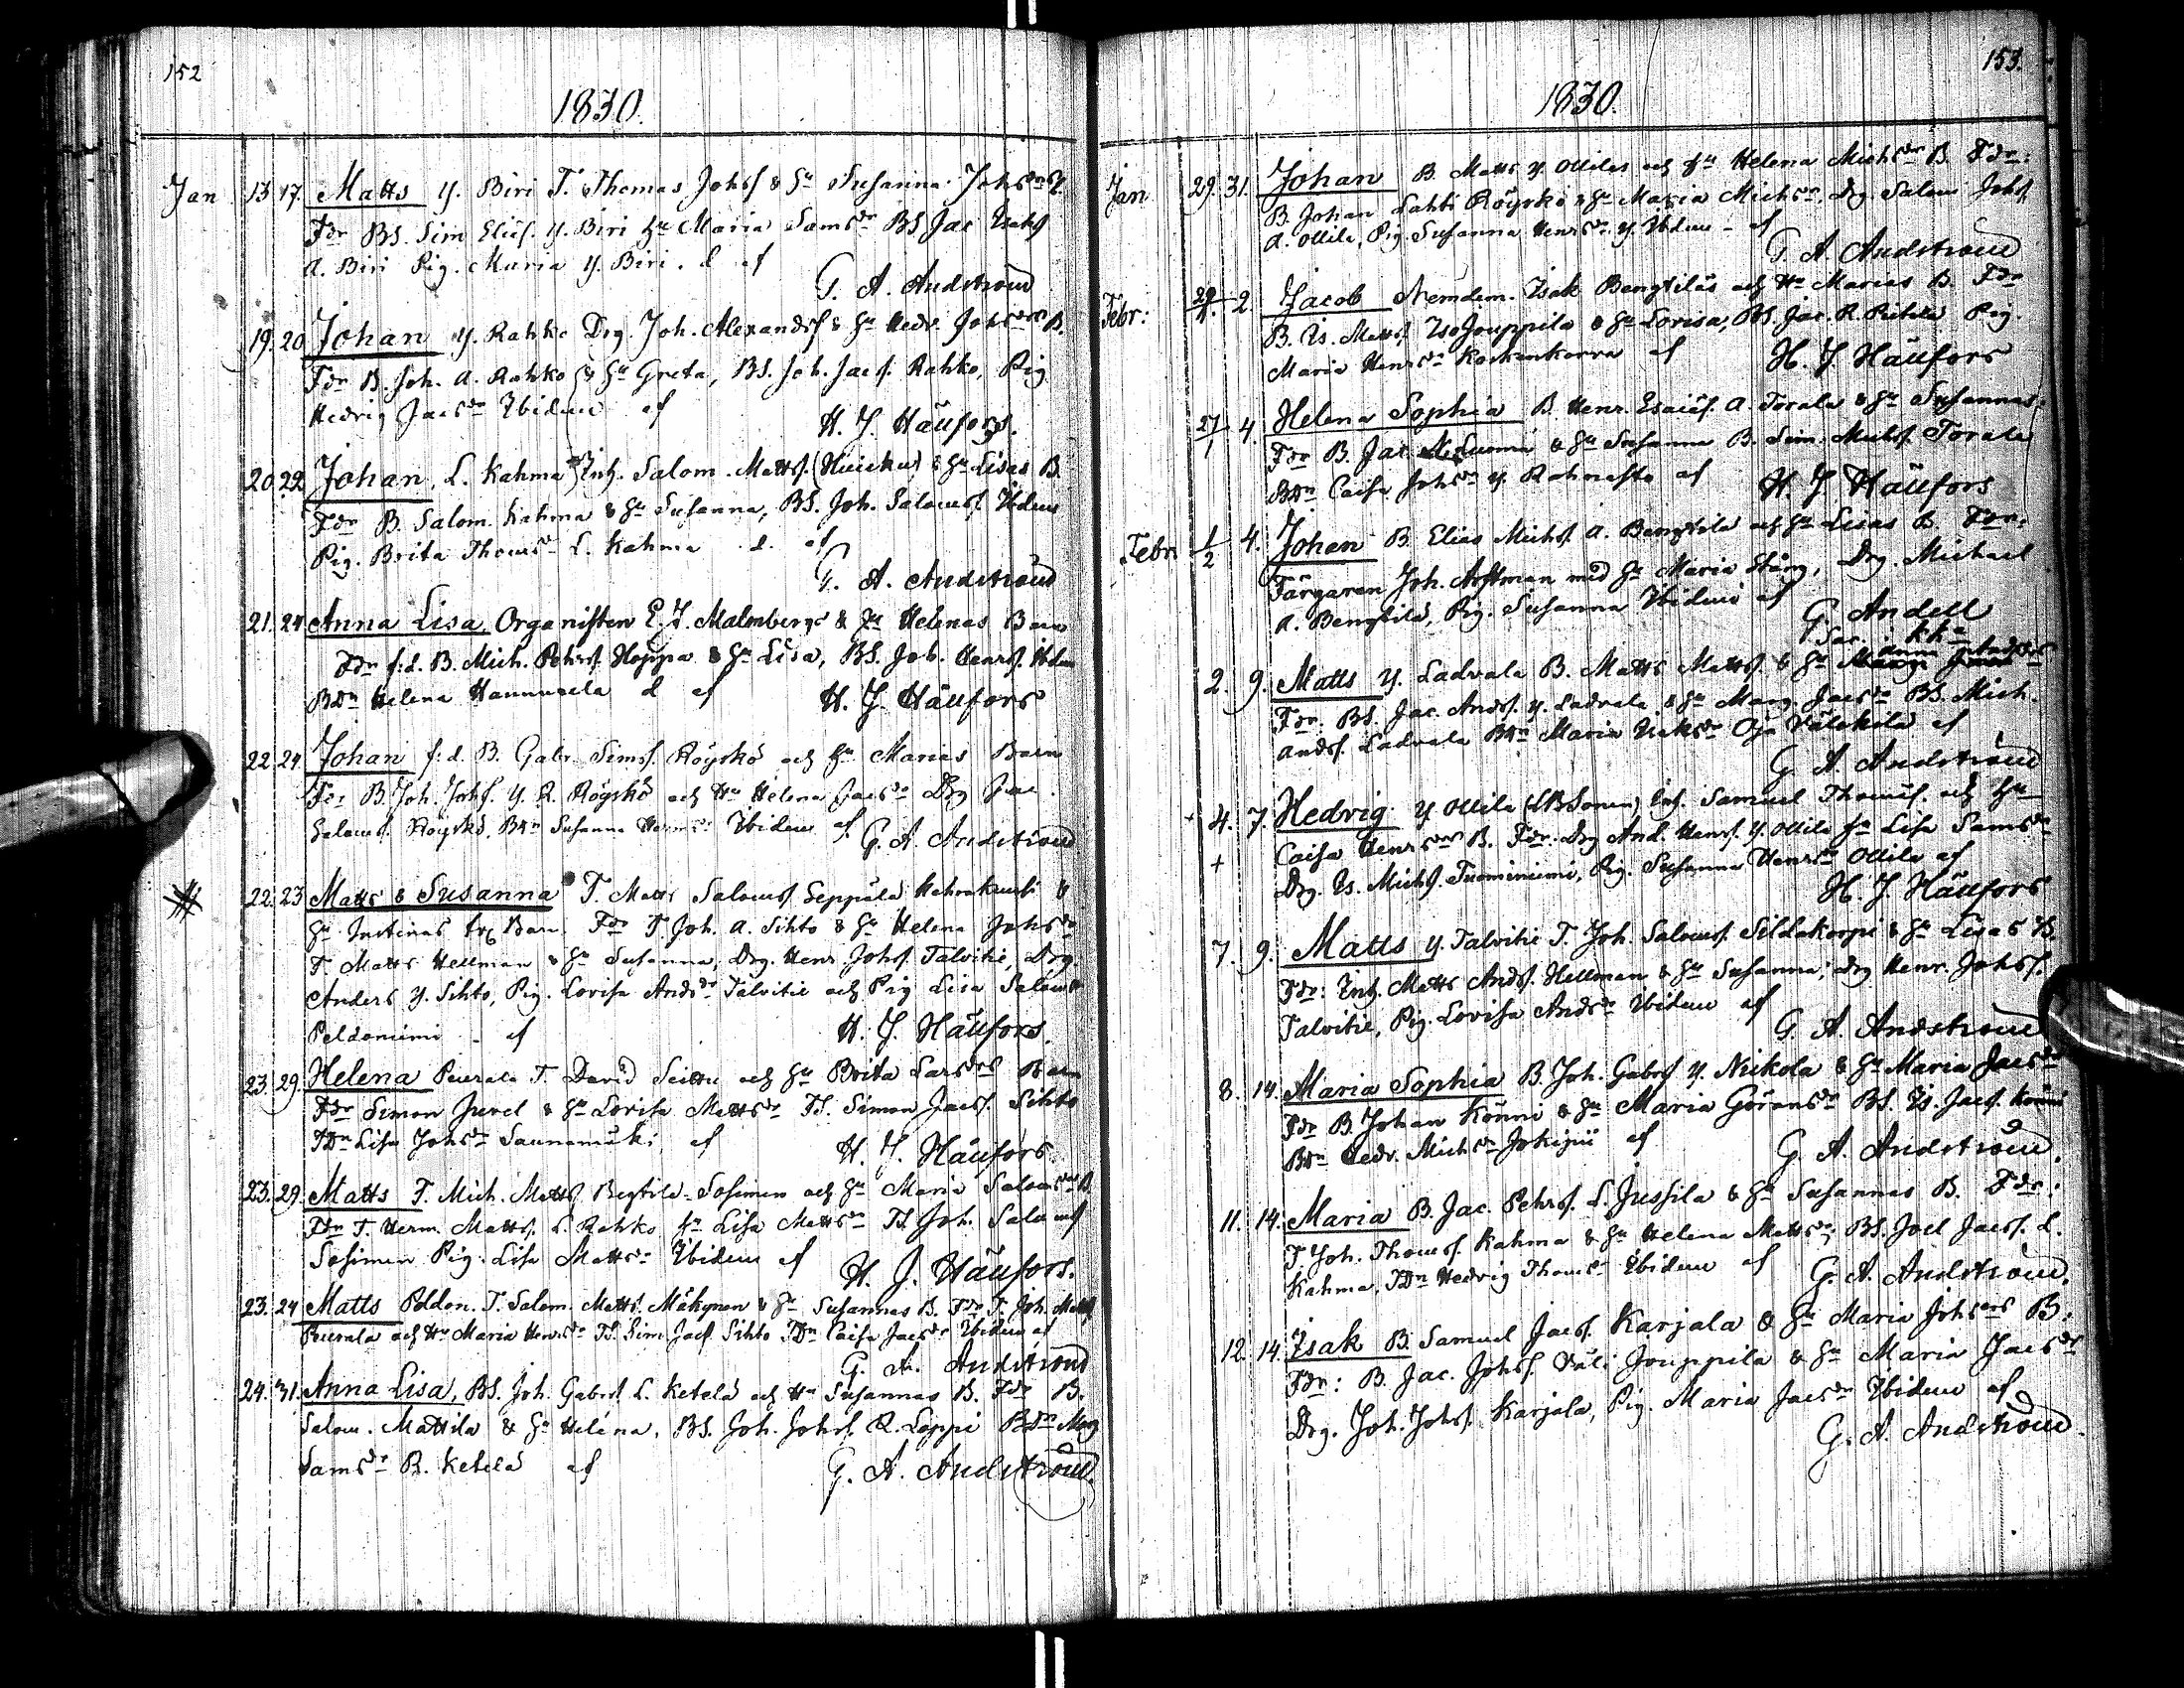 152
1830.
Jan 13 17. Matts Y. Biri T. Thomas Johs & Hu Susanna Johsdrs
Fdr BS. Sim Elisf. Y. Biri Hu Maria Samsdr BS Jac Isaksf
A. Biri Pig. Maria Y. Biri. L af
G. A. Andström
19. 20 Johan Y. Rahko Drg. Joh. Alexandsf & Hu Hedv. Johsdrs B.
Fdr B. Joh. A. Rahko & Hu Greta, BS. Joh. Jacsf. Rahko, Pig
Hedvig Jacsdr Ibidem af
H. J. Häufors.
20 22 Johan, L. Kahma Inh. Salom. Mattsf. (Huicku) & Hu Lisas B.
Fdr B. Salom. Kahma & Hu Susanna, BS. Joh. Salomsf. Ibidem
Pig. Brita Thomsdr L. Kahma L. af
G. A. Andström
21. 24 Anna Lisa, Organisten E. J. Malmbergs & Hu Helenas Barn
Fdr f.d. B. Mich. Pehrsf. Hoppa & Hu Lisa, BS. Joh. Henrsf. Ibdem
BDr Helena Hannuxela L af H. J. Häufors
22 24. Johan f:d. B. Gabr. Simsf. Röyskö och Hu Marias Barn
Fdr B. Joh. Johsf. Y. R. Röyskö och Hu Helena Jacsdr Drg Jac.
Salomsf. Röyskö, BDr Susanna Hermsdr Ibidem af G. A. Andström
22. 23 Matts & Susanna T. Matts Salomsf Seppälä &
Hu Justinas tv. Barn. Fdr T. Joh. A. Sihto & Hu Helena Johsdr
T. Matts Hellman & Hu Susanna, Drg. Henr. Johsf. Talvitie, Drg.
Anders Y. Sihto, Pig. Lovisa Andsdr Talvitie och Pig Lisa Salomsdr
Peldoniemi - af H. J. Häufors.
23. 29. Helena Peurala T. David Seittu och Hu Brita Larsdrs Barn
Fdr Simon Juvel & Hu Lovisa Mattsdr TS. Simon Jacsf. Sihto
TDr Lisa Johsdr Saunamäki af H. J. Häufors
23. 29. Matts T. Mich. Mattsf. Begtile-Sosimen och Hu Maria Salomsdrs B.
Fdr T. Herm. Mattsf. L. Rahko Hu Lisa Mattsdr TS. Joh. Salomsf
Sosimen Pig. Lisa Mattsdr Ibidem af H. J. Häufors.
23. 24 Matts Peldon. T. Salom. Mattsf. Mäkynen & Hu Susannas B. Fdr T. Joh. Mattsf
Peurala och Hu Maria Henrsdr TS. Sim. Jacsf. Sihto TDr Caisa Jacsdr Ibidem af
G. A. Andström
24. 31. Anna Lisa, BS. Joh. Gabrsf. L. Ketelä och Hu Susannas B. Fdr B.
Salom. Mattila & Hu Helena, BS. Joh. Johsf. R. Loppi BDr Marg
Samsdr R. Ketelä af G. A. Andström.
153.
1830.
Jan 29. 31. Johan B. Matts Y. Ollilas och Hu Helena Michsdrs B. Fdr:
B. Johan Lahti Röyskö & Hu Maria Michsdr, Drg. Salom Johsf
A. Ollila, Pig. Susanna Henrsdr Y. Ibidem - af
G. A. Andström
Febr: 29/1. 2. Jacob Nemdem. Isak Bengtiläs och Hu Marias B. Fdr
B. Is. Mattsf. Iso Jouppila & Hu Lovisa, BS. Jac. R. Pietilä Pig.
Maria Henrsdr Koskenkorva af H. J. Häufors
27/1 4. Helena Sophia B. Henr. Esaiæsf. A. Torala & Hu Susannas:
Fdr B. Jac. Luoma & Hu Susanna B. Sim. Michsf. Torala
BDr Caisa Johsdr Y. Rahnasto af H. J. Häufors
Febr 1/2 4. Johan B. Elias Michsf. A. Bengtila och Hu Lisas B. Fdr:
Färgaren Joh. Arftman med Hu Maria Stäng, Drg. Michael
A. Bengtilä, Pig. Susanna Ibidem af
G. Andell
Sac.
2. 9. Matts Y. Ladvala B. Matts Mattsf. & Hu Anna Andsdrs
Fdr. BS. Jac. Andsf. Y. Ladvala & Hu Marg Jacsdr BS. Mich.
Andsf. Ladvala BDr Maria Isaksdr Oja Välikelä af
G. A. Andström
+ 4. 7. Hedvig Y Ollila Inh. Samuel Thomsf. och Hu
Caisa Henrsdrs B. Fdr: Drg And. Henrsf. Y. Ollila Hu Lisa Samsdr
Drg. Is. Michsf. Tuominiemi, Pig. Susanna Henrsdr Ollila af
H. J. Häufors
7. 9. Matts Y. Talvitie T. Joh. Salomsf. Sildakorpi & Hu Lisas B.
Fdr: Inh. Matts Andsf. Hellman & Hu Susanna; Drg Henr. Johsf.
Talvitie, Pig. Lovisa Andsdr Ibidem af
G. A. Andström
8. 14. Maria Sophia B. Joh. Gabrsf Y. Nikola & Hu Maria Jacsdrs
Fdr B. Johan Könni & Hu Maria Göransdr BS. Is. Jacsf. Könni
BDr Hedv. Michsdr Jokipii af G. A. Andström.
11. 14. Maria B. Jac. Pehrsf. L. Jussila & Hu Susannas B. Fdr:
T. Joh. Thomsf. Kahma & Hu Helena Mattsdr; BS. Joel Jacsf. L.
Kahma, TDr Hedvig Thomsdr Ibidem af G. A. Andström.
12. 14. Isak B. Samuel Jacsf. Karjala & Hu Maria Johsdrs B:
Fdr: B. Jac. Johsf. Väli Jouppila & Hu Maria Jacsdr
Drg. Joh. Johsf. Karjala, Pig. Maria Jacsdr Ibidem af
G. A. Andström.